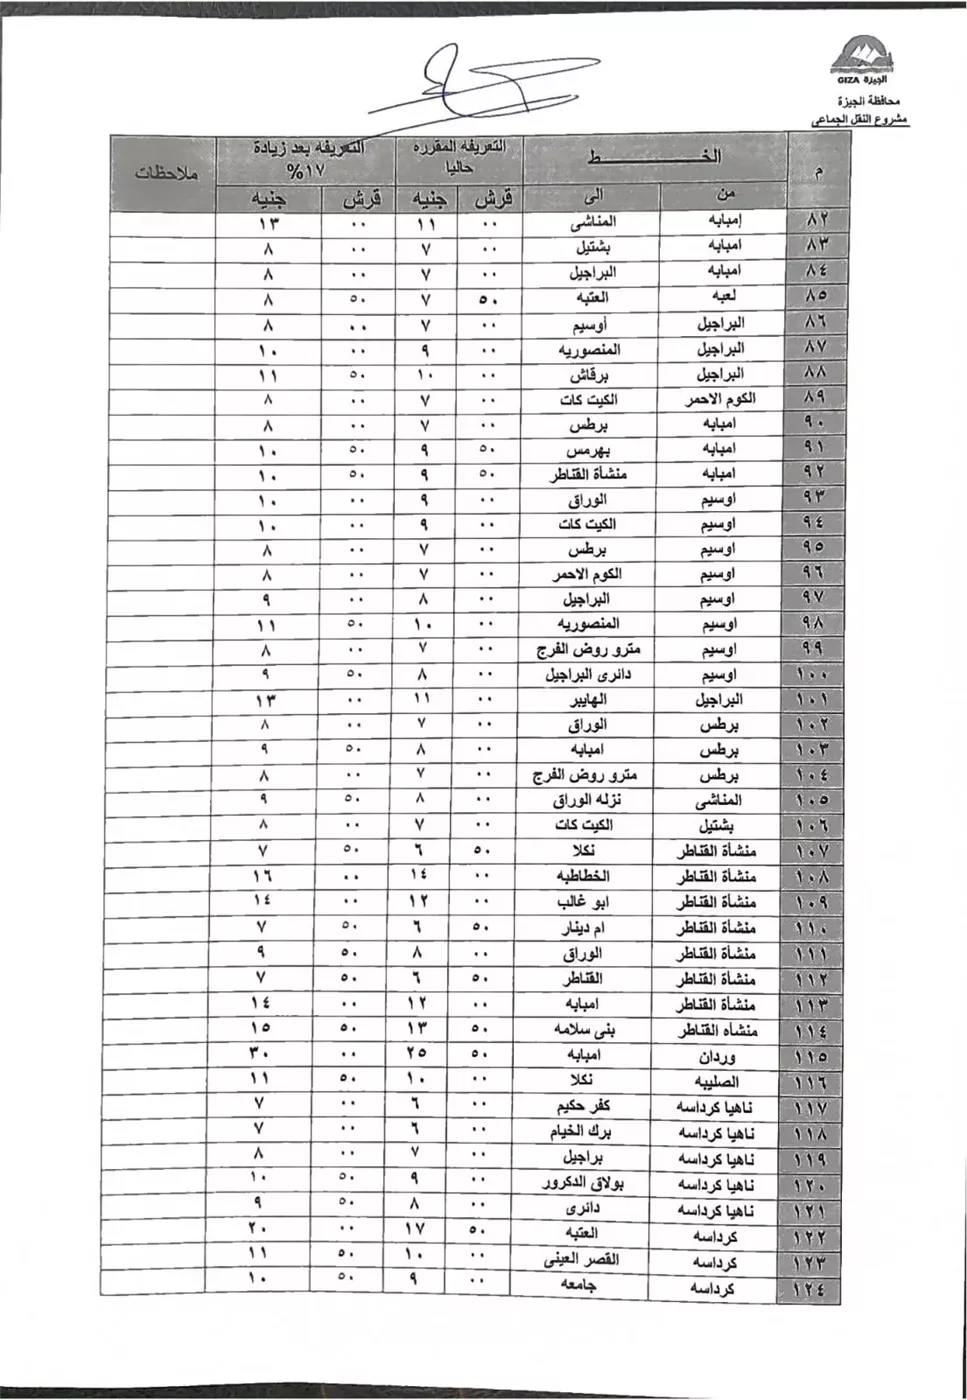 الجيزة GIZA
محافظة الجيزة
مشروع النقل الجماعى
م الخط التعريفه المقرره حاليا التعريفه بعد زيادة ١٧% ملاحظات
من الى قرش جنيه قرش جنيه
٨٢ إمبابه المناشى ٠٠ ١١ ٠٠ ١٣
٨٣ امبابه بشتيل ٠٠ ٧ ٠٠ ٨
٨٤ امبابه البراجيل ٠٠ ٧ ٠٠ ٨
٨٥ لعبه العتبه ٥٠ ٧ ٥٠ ٨
٨٦ البراجيل أوسيم ٠٠ ٧ ٠٠ ٨
٨٧ البراجيل المنصوريه ٠٠ ٩ ٠٠ ١٠
٨٨ البراجيل برقاش ٠٠ ١٠ ٥٠ ١١
٨٩ الكوم الاحمر الكيت كات ٠٠ ٧ ٠٠ ٨
٩٠ امبابه برطس ٠٠ ٧ ٠٠ ٨
٩١ امبابه بهرمس ٥٠ ٩ ٥٠ ١٠
٩٢ امبابه منشأة القناطر ٥٠ ٩ ٥٠ ١٠
٩٣ اوسيم الوراق ٠٠ ٩ ٠٠ ١٠
٩٤ اوسيم الكيت كات ٠٠ ٩ ٠٠ ١٠
٩٥ اوسيم برطس ٠٠ ٧ ٠٠ ٨
٩٦ اوسيم الكوم الاحمر ٠٠ ٧ ٠٠ ٨
٩٧ اوسيم البراجيل ٠٠ ٨ ٠٠ ٩
٩٨ اوسيم المنصوريه ٠٠ ١٠ ٥٠ ١١
٩٩ اوسيم مترو روض الفرج ٠٠ ٧ ٠٠ ٨
١٠٠ اوسيم دائرى البراجيل ٠٠ ٨ ٥٠ ٩
١٠١ البراجيل الهايبر ٠٠ ١١ ٠٠ ١٣
١٠٢ برطس الوراق ٠٠ ٧ ٠٠ ٨
١٠٣ برطس امبابه ٠٠ ٨ ٥٠ ٩
١٠٤ برطس مترو روض الفرج ٠٠ ٧ ٠٠ ٨
١٠٥ المناشى نزله الوراق ٠٠ ٨ ٥٠ ٩
١٠٦ بشتيل الكيت كات ٠٠ ٧ ٠٠ ٨
١٠٧ منشأة القناطر نكلا ٥٠ ٦ ٥٠ ٧
١٠٨ منشأة القناطر الخطاطبه ٠٠ ١٤ ٠٠ ١٦
١٠٩ منشأة القناطر ابو غالب ٠٠ ١٢ ٠٠ ١٤
١١٠ منشأة القناطر ام دينار ٥٠ ٦ ٥٠ ٧
١١١ منشأة القناطر الوراق ٠٠ ٨ ٥٠ ٩
١١٢ منشأة القناطر القناطر ٥٠ ٦ ٥٠ ٧
١١٣ منشأة القناطر امبابه ٠٠ ١٢ ٠٠ ١٤
١١٤ منشاه القناطر بنى سلامه ٥٠ ١٣ ٥٠ ١٥
١١٥ وردان امبابه ٥٠ ٢٥ ٠٠ ٣٠
١١٦ الصليبه نكلا ٠٠ ١٠ ٥٠ ١١
١١٧ ناهيا كرداسه كفر حكيم ٠٠ ٦ ٠٠ ٧
١١٨ ناهيا كرداسه برك الخيام ٠٠ ٦ ٠٠ ٧
١١٩ ناهيا كرداسه براجيل ٠٠ ٧ ٠٠ ٨
١٢٠ ناهيا كرداسه بولاق الدكرور ٠٠ ٩ ٥٠ ١٠
١٢١ ناهيا كرداسه دائرى ٠٠ ٨ ٥٠ ٩
١٢٢ كرداسه العتبه ٥٠ ١٧ ٠٠ ٢٠
١٢٣ كرداسه القصر العينى ٠٠ ١٠ ٥٠ ١١
١٢٤ كرداسه جامعه ٠٠ ٩ ٥٠ ١٠